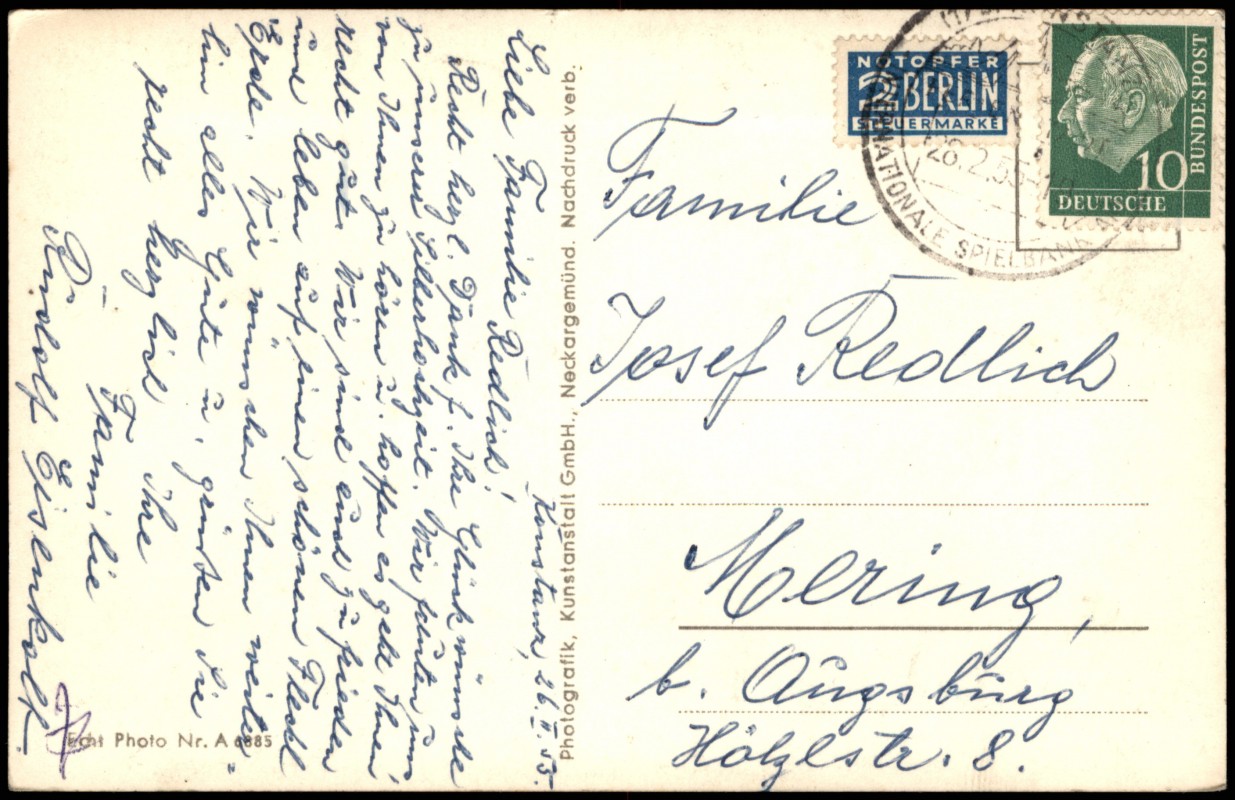 Konstanz, 26.II.55.
Liebe Familie Redlich!
Recht herzl. Dank f. Ihre Glückwünsche
zu unserer Silberhochzeit. Wir freuten uns
von Ihnen zu hören u. hoffen es geht Ihnen
recht gut. Wir sind auch zufrieden
und leben auf einen schönen Fleckl
Erde. Wir wünschen Ihnen weiter-
hin alles Gute u. grüßen Sie
recht herzlich Ihre
Familie
Rudolf
Echt Photo Nr. A 6885
Photografik, Kunstanstalt GmbH., Neckargemünd. Nachdruck verb.
NOTOPFER
2 BERLIN
STEUERMARKE
DEUTSCHE
BUNDESPOST
10
KONSTANZ
INTERNATIONALE SPIELBANK
26.2.55
Familie
Josef Redlich
Mering,
b. Augsburg
Hölzlstr. 8.